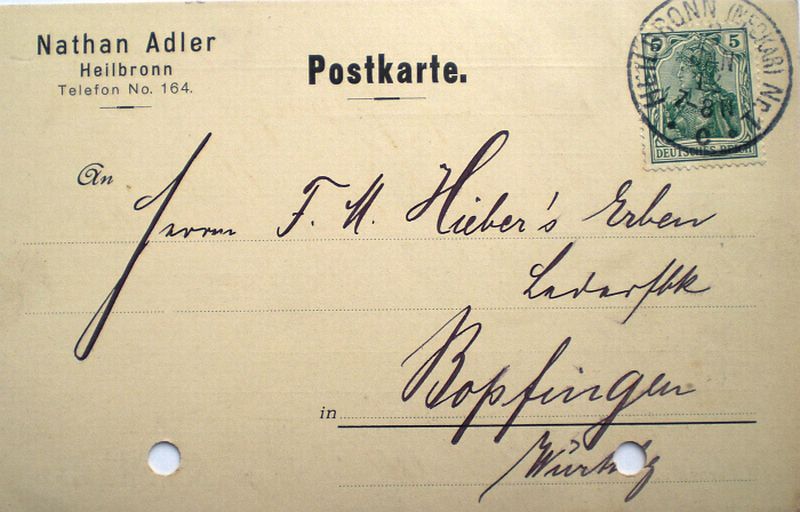 Nathan Adler
Heilbronn
Telefon No. 164.
Postkarte.
HEILBRONN (NECKAR) Nr. 1
7-8 N
* c *
5 5
DEUTSCHES REICH
An
Herrn F. M. Hieber's Erben
Lederfbk
in Bopfingen